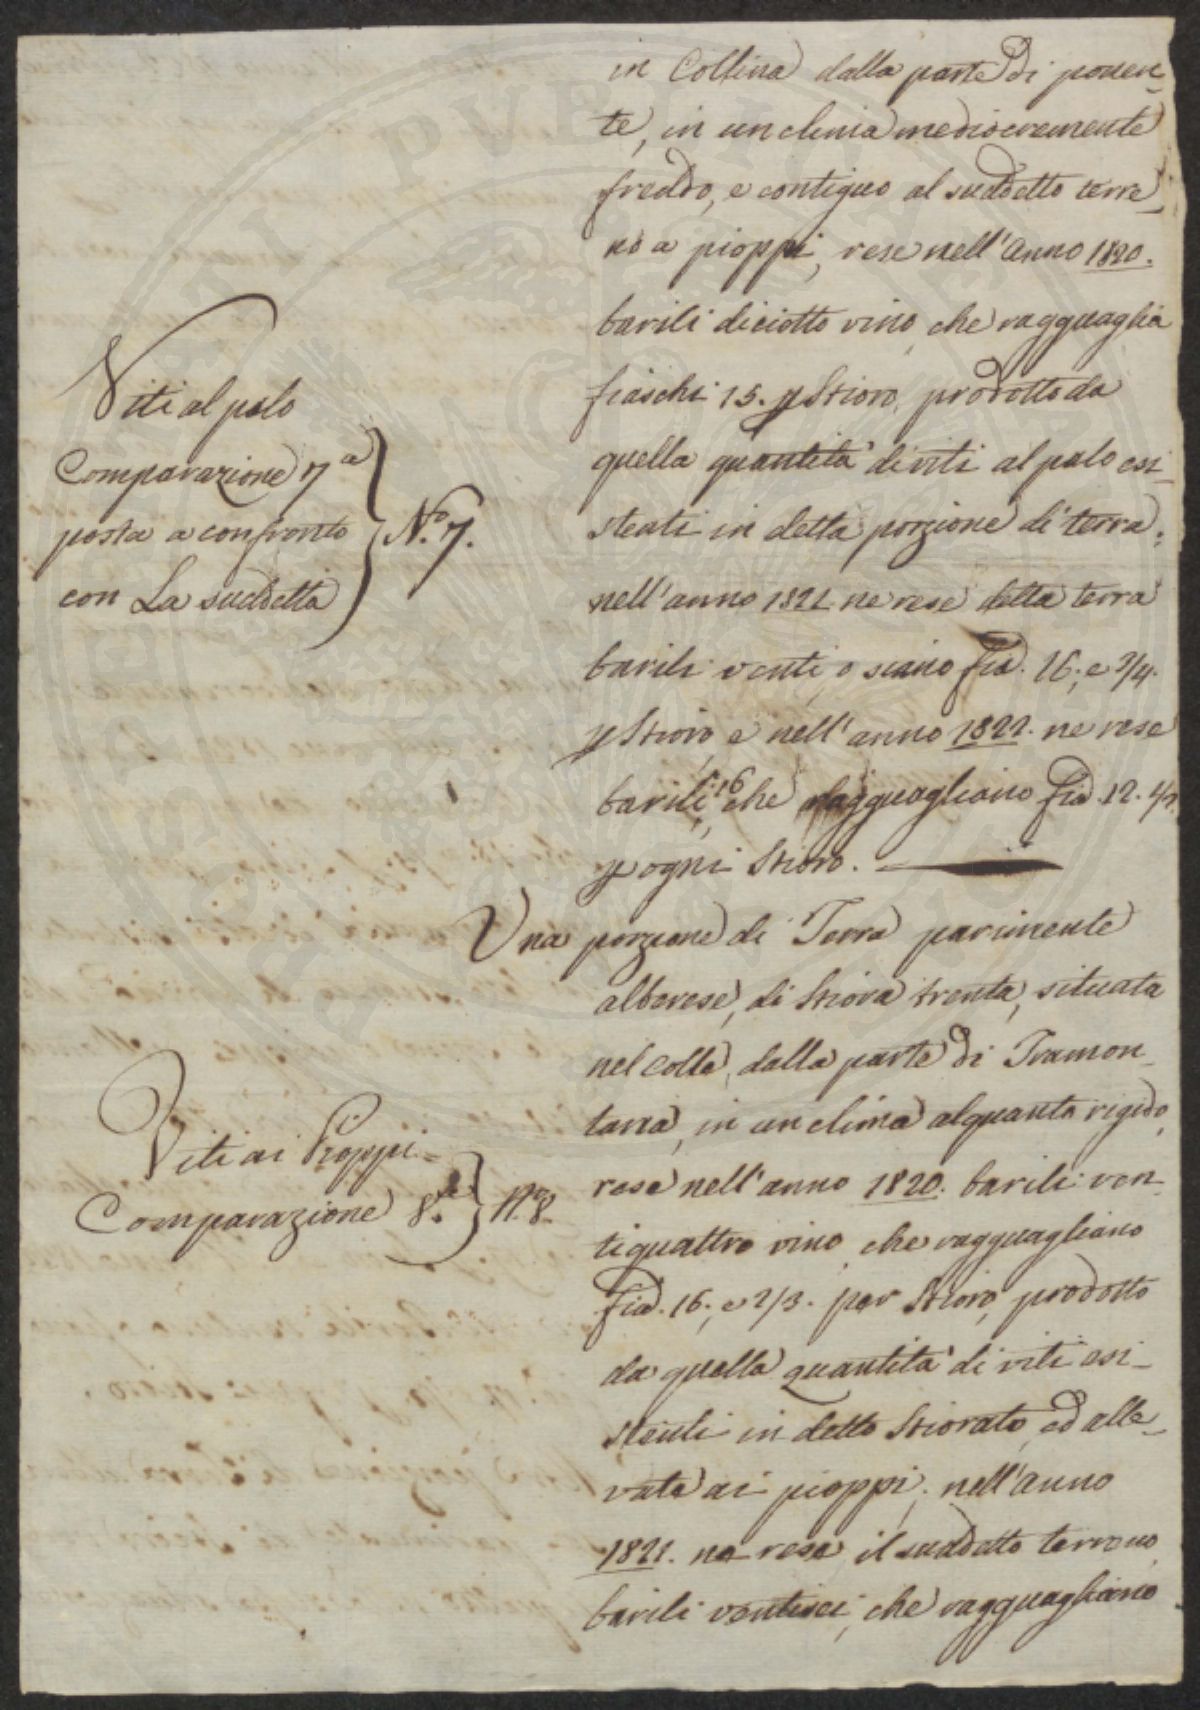 in Collina dalla parte di ponen-
te, in un clima mediocremente
freddo, e contiguo al suddetto terre-
no a pioppi, rese nell'Anno 1820.
barili diciotto vino, che ragguaglia
fiaschi 15. p Stioro, prodotto da
quella quantità di viti al palo esi-
stenti in detta porzione di terra:
nell'anno 1821 ne rese detta terra
barili venti, o siano fia. 16., e 3/4.
p Stioro, e nell'anno 1822. ne rese
barili 16, che ragguagliano fia. 12. 1/2
p ogni Stioro.
Viti al palo
Comparazione 7a
posta a confronto
con La suddetta
No. 7.
Una porzione di Terra parimente
alberese, di Stiora trenta, situata
nel colle, dalla parte di Tramon-
tana, in un clima alquanto rigido,
rese nell'anno 1820. barili ven-
tiquattro vino, che ragguagliano
fia. 16., e 2/3. per Stioro, prodotto
da quella quantità di viti esi-
stenti in detto Stiorato, ed alle-
vate ai pioppi; nell'anno
1821. ne rese il suddetto terreno
barili ventisei, che ragguagliano
Viti ai Pioppi
Comparazione 8.a
No. 8.